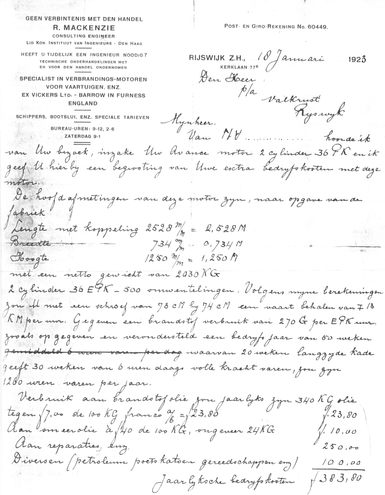 GEEN VERBINTENIS MET DEN HANDEL
R. MACKENZIE
CONSULTING ENGINEER
LID KON. INSTITUUT VAN INGENIEURS - DEN HAAG
HEEFT U TIJDELIJK EEN INGENIEUR NOODIG?
TECHNISCHE ONDERHANDELINGEN MET
EN VOOR DEN HANDEL ONDERNOMEN
SPECIALIST IN VERBRANDINGS-MOTOREN
VOOR VAARTUIGEN. ENZ.
EX VICKERS LTD. - BARROW IN FURNESS
ENGLAND
SCHIPPERS, BOOTSLUI, ENZ. SPECIALE TARIEVEN
BUREAU-UREN: 9-12, 2-6
ZATERDAG 9-1
POST- EN GIRO-REKENING No. 60449.
RIJSWIJK Z.H., 18 Januari 1923
KERKLAAN
Den Heer
p/a
Valkrust
Ryswyk
Mynheer
Van hoorde ik
van Uw bezoek, inzake Uw Avance motor 2 cylinder 36 PK en ik
geef U hierby een begrooting van Uwe extra bedryfskosten met deze
motor.
De hoofdafmetingen van deze motor zyn, naar opgave van de
fabriek
Lengte met koppeling 2528 m/m = 2,528 M
Breedte 734 m/m 0,734 M
Hoogte 1250 m/m = 1,250 M
met een netto gewicht van 2030 KG
2 cylinder 36 EPK - 500 omwentelingen. Volgens myne berekeningen
zou U met een schroef van 73 cM by 74 cM een vaart behalen van 7
KM per uur. Gegeven een brandstof verbruik van 270 G per EPK uur
zooals op gegeven en veronderstel een bedryfsjaar van 50 weken
waarvan 20 weken langzyde kade
geeft 30 weken van 6 uren daags volle kracht varen, zou zyn
1260 uren varen per jaar.
Verbruik aan brandstofolie zou jaarlyks zyn 340 KG olie
tegen ƒ7,00 de 100 KG franco a/b = ƒ23,80 ƒ 23,80
Aan smeerolie à ƒ40 de 100 KG, ongeveer 24 KG ƒ 10.00
Aan reparaties, enz. 250.00
Diversen (petroleum poetskatoen gereedschappen enz) 100.00
Jaarlyksche bedryfskosten ƒ383,80